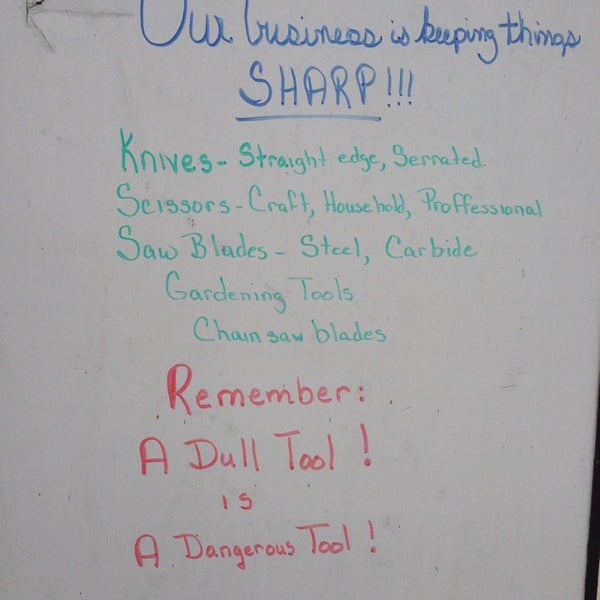 Our business is keeping things
SHARP!!!
Knives - Straight edge, Serrated
Scissors - Craft, Household, Proffessional
Saw Blades - Steel, Carbide
Gardening Tools
Chain saw blades
Remember:
A Dull Tool !
is
A Dangerous Tool !